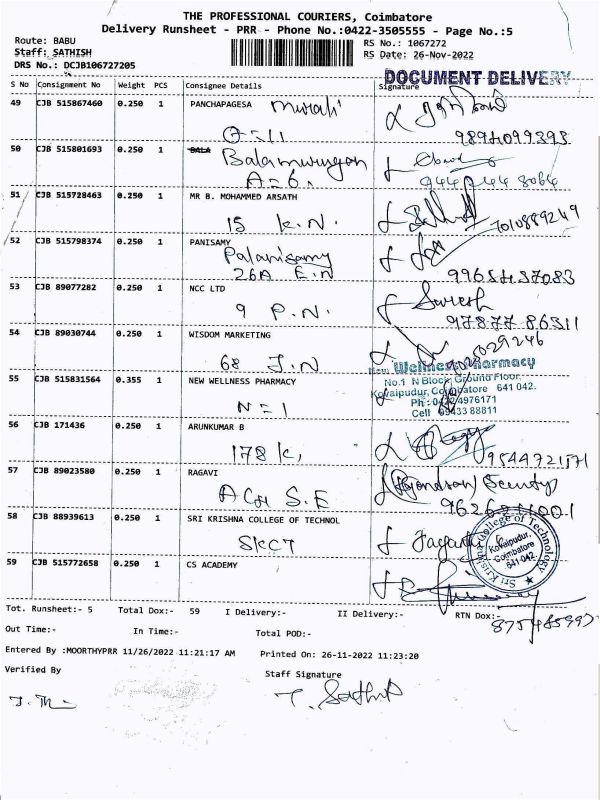 THE PROFESSIONAL COURIERS, Coimbatore
Delivery Runsheet - PRR - Phone No.:0422-3505555 - Page No.:5
Route: BABU
RS No.: 1067272
Staff: SATHISH
RS Date: 26-Nov-2022
DRS No.: DCJB106727205
DOCUMENT DELIVERY
S No Consignment No Weight PCS Consignee Details Signature
49 CJB 515867460 0.250 1 PANCHAPAGESA Murali
9894099393
50 CJB 515801693 0.250 1 BALA
Balamurugan
A=6.
51 CJB 515728463 0.250 1 MR B. MOHAMMED ARSATH
15 K.N.
7010889249
52 CJB 515798374 0.250 1 PANISAMY
Palanisamy
26A E.N
53 CJB 89077282 0.250 1 NCC LTD
9 P.N.
Suresh
97877 86311
54 CJB 89030744 0.250 1 WISDOM MARKETING
68 J.N
55 CJB 515831564 0.355 1 NEW WELLNESS PHARMACY
N=1
New Wellness Pharmacy
No.1 N Block, Ground Floor,
Kovaipudur, Coimbatore 641 042.
Ph: 0422 4976171
Cell 09433 88811
56 CJB 171436 0.250 1 ARUNKUMAR B
178 K,
57 CJB 89023580 0.250 1 RAGAVI
S.E
58 CJB 88939613 0.250 1 SRI KRISHNA COLLEGE OF TECHNOL
SKCT
Sri Krishna College of Technology
Kovaipudur,
Coimbatore
641 042
59 CJB 515772658 0.250 1 CS ACADEMY
Tot. Runsheet:- 5 Total Dox:- 59 I Delivery:- II Delivery:- RTN Dox:-
Out Time:- In Time:- Total POD:-
Entered By :MOORTHYPRR 11/26/2022 11:21:17 AM Printed On: 26-11-2022 11:23:20
Verified By Staff Signature